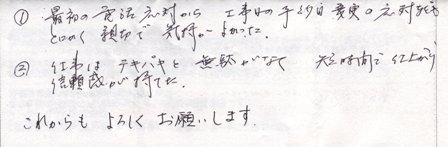 ① 最初の電話応対から 工事日の手紗自業実の応対まで
とにかく 親切で 気持がよかった。
② 仕事は テキパキと 無駄がなく 短時間で仕上がり
信頼感が持てた。
これからも よろしく お願いします。